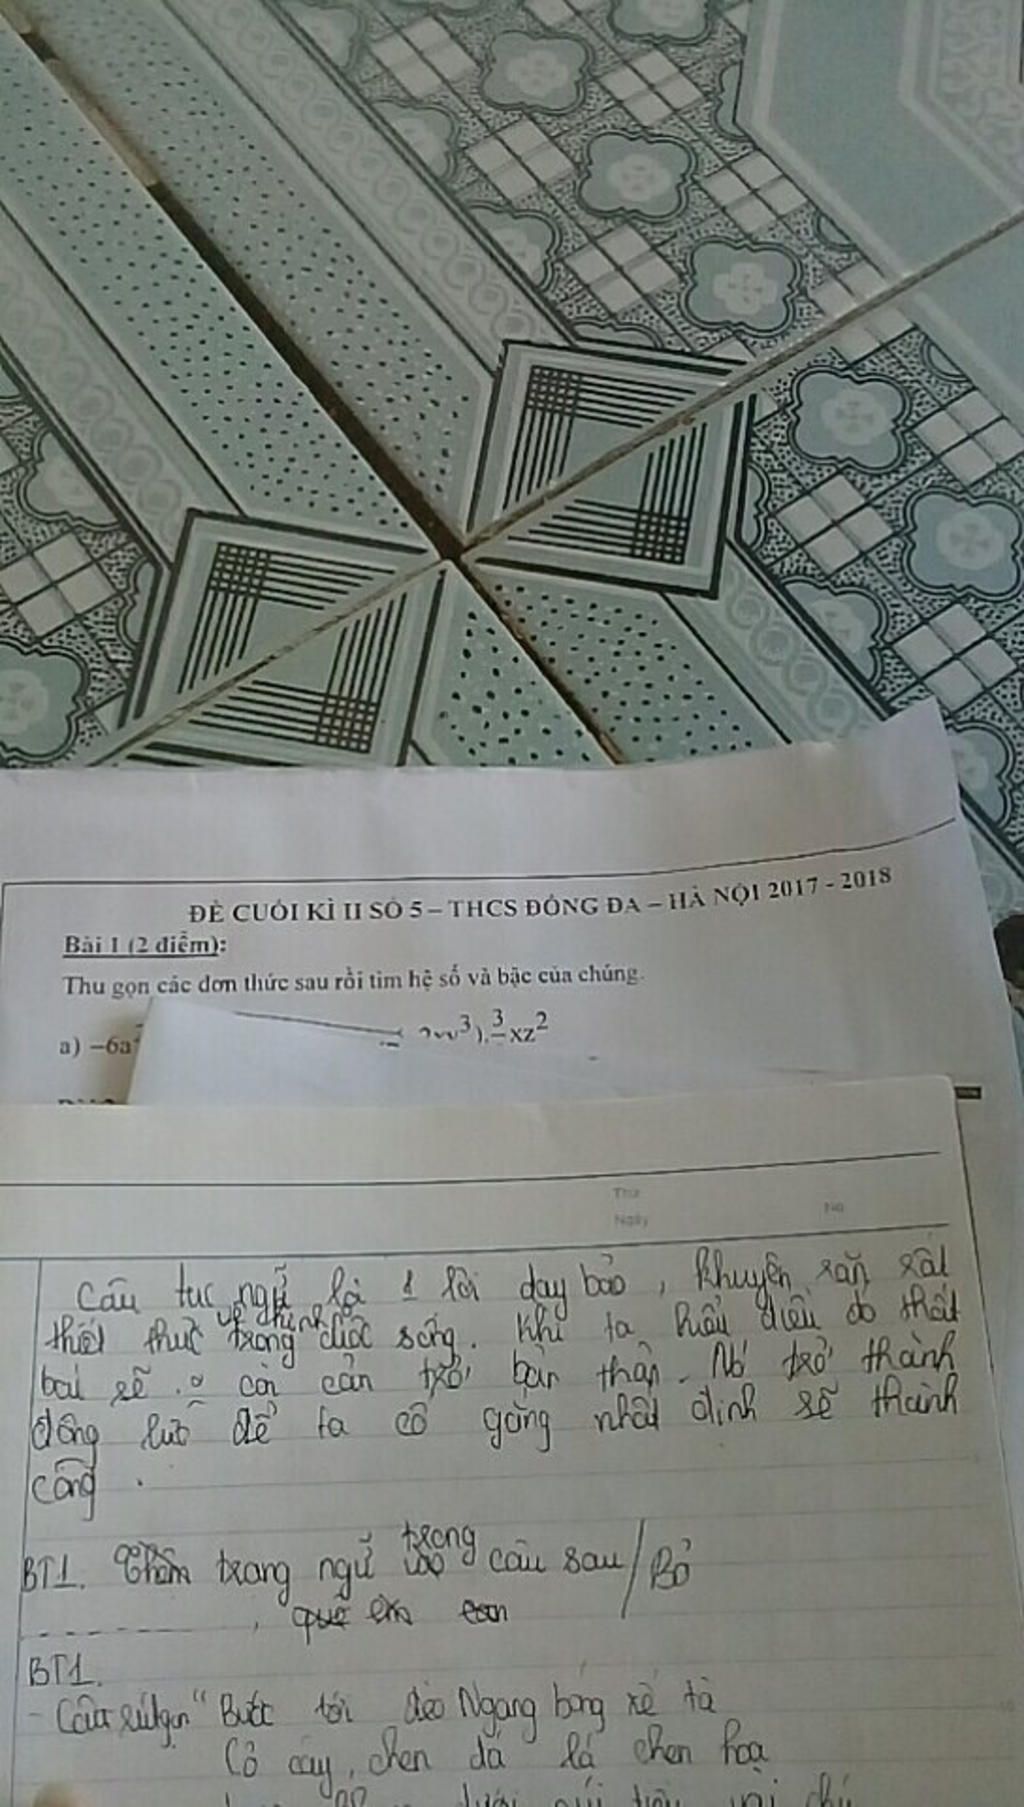 ĐỀ CUỐI KÌ II SỐ 5 – THCS ĐỐNG ĐA – HÀ NỘI 2017 - 2018
Bài 1 (2 điểm):
Thu gọn các đơn thức sau rồi tìm hệ số và bậc của chúng.
a) −6a ³).3/–xz²
Thứ
Ngày No
Câu tục ngữ là 1 lời dạy bảo, khuyên răn rất
thiết thực trong cuộc sống. Khi ta hiểu điều đó thất
bại sẽ còn cản trở bản thân. Nó trở thành
động lực để ta cố gắng nhất định sẽ thành
công.
BT1. trạng ngữ trong câu sau / Bỏ
, quê em
BT1.
- Câu rút gọn "Bước tới đèo Ngang bóng xế tà
Cỏ cây, chen đá lá chen hoa